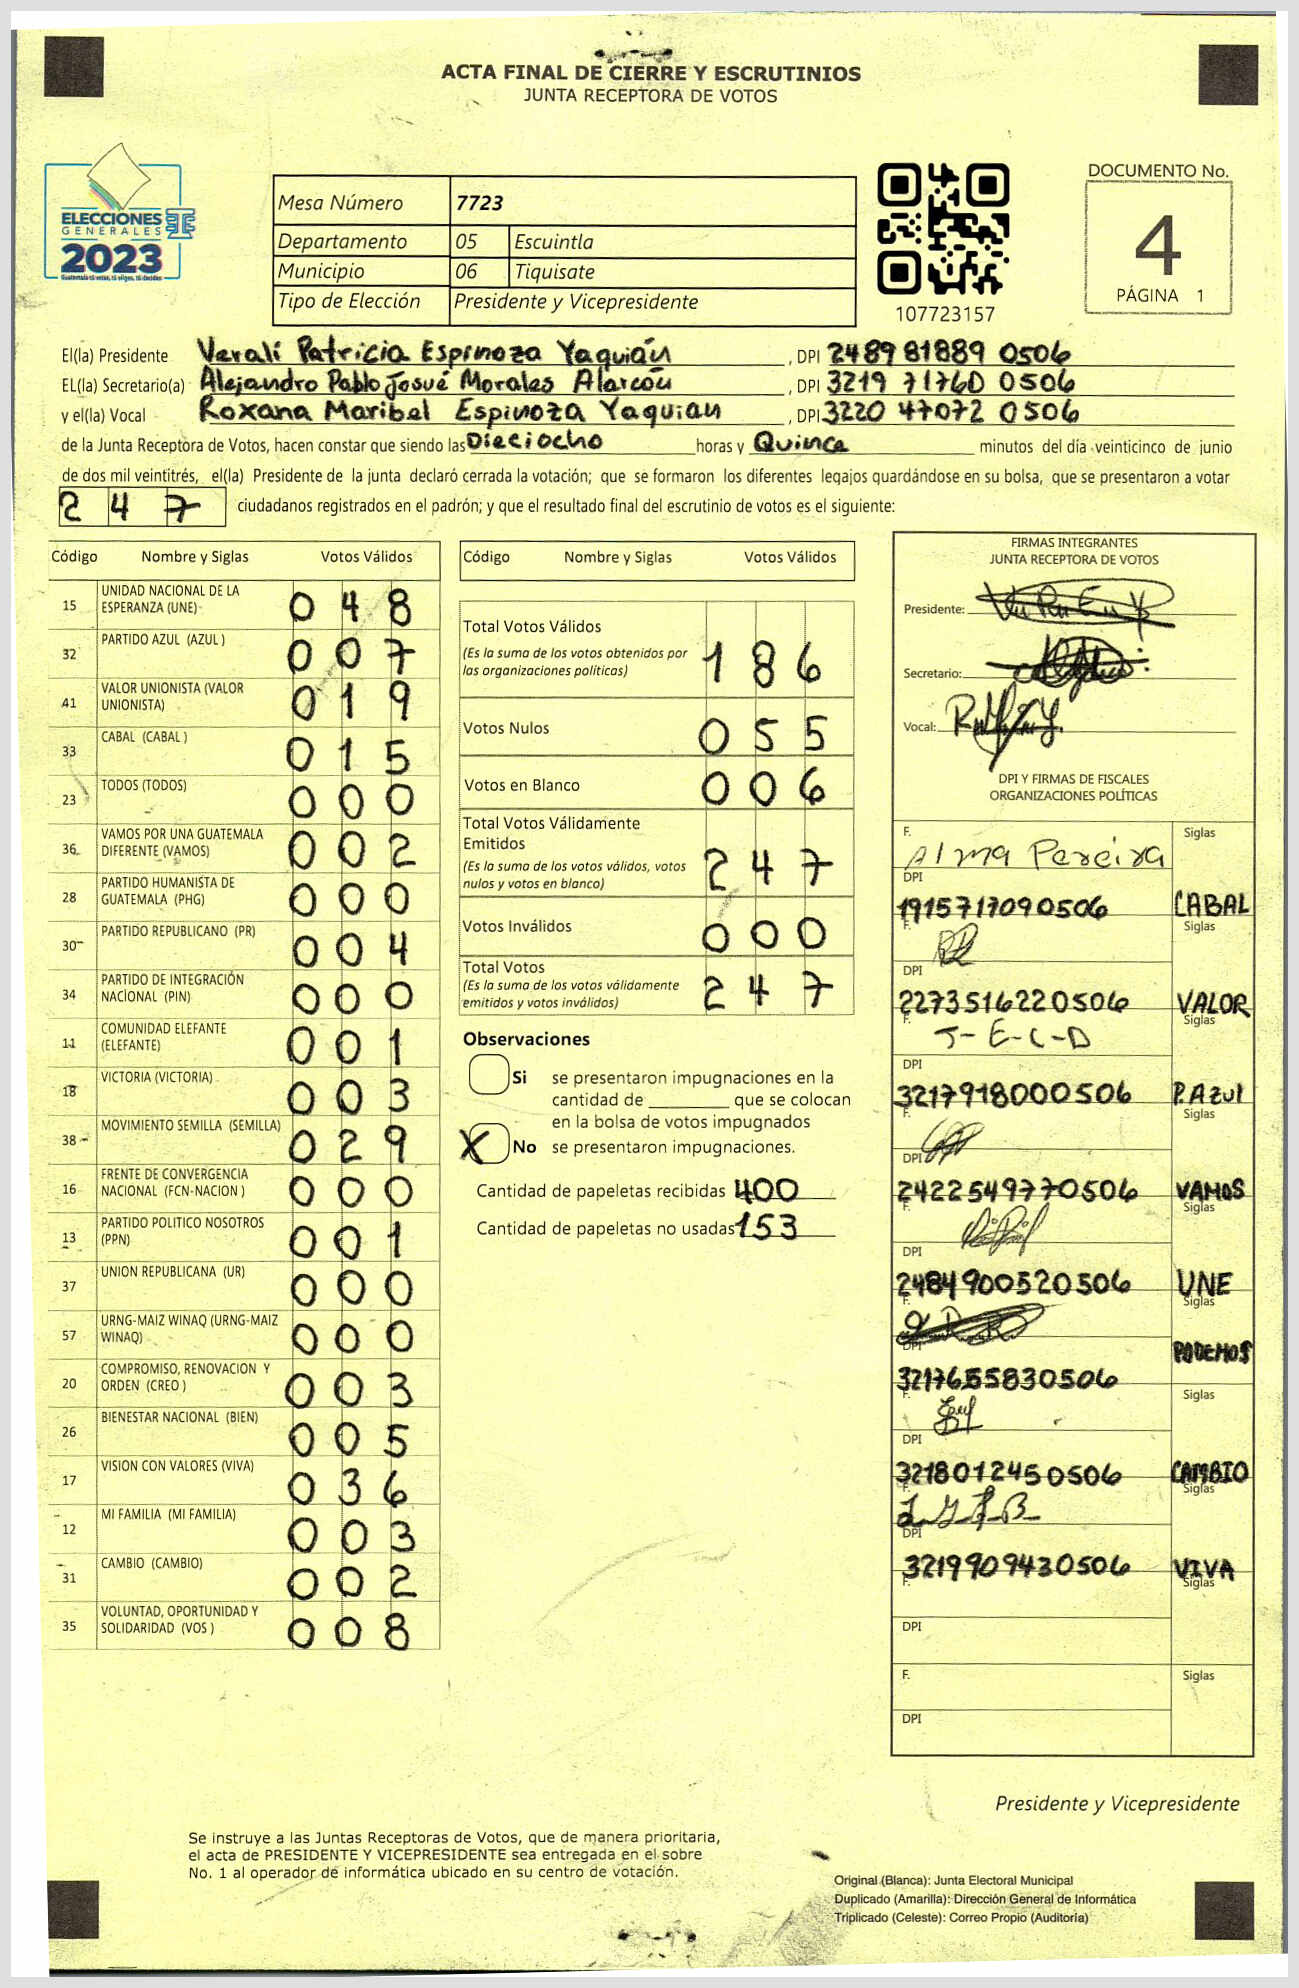 ACTA FINAL DE CIERRE Y ESCRUTINIOS
JUNTA RECEPTORA DE VOTOS
ELECCIONES
GENERALES
2023
Guatemala tú votas, tú eliges, tú decides
Mesa Número 7723
Departamento 05 Escuintla
Municipio 06 Tiquisate
Tipo de Elección Presidente y Vicepresidente
107723157
DOCUMENTO No.
4
PÁGINA 1
El(la) Presidente Veralí Patricia Espinoza Yaquián, DPI 2489 81889 0506
EL(la) Secretario(a) Alejandro Pablo Josué Morales Alarcón, DPI 3219 71760 0506
y el(la) Vocal Roxana Maribel Espinoza Yaquian, DPI 3220 47072 0506
de la Junta Receptora de Votos, hacen constar que siendo las Dieciocho horas y Quince minutos del día veinticinco de junio
de dos mil veintitrés, el(la) Presidente de la junta declaró cerrada la votación; que se formaron los diferentes legajos guardándose en su bolsa, que se presentaron a votar
247 ciudadanos registrados en el padrón; y que el resultado final del escrutinio de votos es el siguiente:
Código Nombre y Siglas Votos Válidos
15 UNIDAD NACIONAL DE LA ESPERANZA (UNE) 048
32 PARTIDO AZUL (AZUL ) 007
41 VALOR UNIONISTA (VALOR UNIONISTA) 019
33 CABAL (CABAL ) 015
23 TODOS (TODOS) 000
36 VAMOS POR UNA GUATEMALA DIFERENTE (VAMOS) 002
28 PARTIDO HUMANISTA DE GUATEMALA (PHG) 000
30 PARTIDO REPUBLICANO (PR) 004
34 PARTIDO DE INTEGRACIÓN NACIONAL (PIN) 000
11 COMUNIDAD ELEFANTE (ELEFANTE) 001
18 VICTORIA (VICTORIA) 003
38 MOVIMIENTO SEMILLA (SEMILLA) 029
16 FRENTE DE CONVERGENCIA NACIONAL (FCN-NACION ) 000
13 PARTIDO POLITICO NOSOTROS (PPN) 001
37 UNION REPUBLICANA (UR) 000
57 URNG-MAIZ WINAQ (URNG-MAIZ WINAQ) 000
20 COMPROMISO, RENOVACION Y ORDEN (CREO ) 003
26 BIENESTAR NACIONAL (BIEN) 005
17 VISION CON VALORES (VIVA) 036
12 MI FAMILIA (MI FAMILIA) 003
31 CAMBIO (CAMBIO) 002
35 VOLUNTAD, OPORTUNIDAD Y SOLIDARIDAD (VOS ) 008
Código Nombre y Siglas Votos Válidos
Total Votos Válidos
(Es la suma de los votos obtenidos por las organizaciones políticas) 186
Votos Nulos 055
Votos en Blanco 006
Total Votos Válidamente Emitidos
(Es la suma de los votos válidos, votos nulos y votos en blanco) 247
Votos Inválidos 000
Total Votos
(Es la suma de los votos válidamente emitidos y votos inválidos) 247
Observaciones
Si se presentaron impugnaciones en la
cantidad de ________ que se colocan
en la bolsa de votos impugnados
X No se presentaron impugnaciones.
Cantidad de papeletas recibidas 400
Cantidad de papeletas no usadas 153
FIRMAS INTEGRANTES
JUNTA RECEPTORA DE VOTOS
Presidente:
Secretario:
Vocal:
DPI Y FIRMAS DE FISCALES
ORGANIZACIONES POLÍTICAS
F. Alma Pereira Siglas
DPI 1915717090506 CABAL
F. Siglas
DPI 2273516220506 VALOR
F. J-E-C-D Siglas
DPI 3217918000506 P.AZUl
F. Siglas
DPI 2422549770506 VAMOS
F. Siglas
DPI 2484900520506 UNE
F. Siglas
DPI 3217655830506 PODEMOS
F. Siglas
DPI 3218012450506 CAMBIO
F. Siglas
DPI 3219909430506 VIVA
F. Siglas
DPI
F. Siglas
DPI
Presidente y Vicepresidente
Se instruye a las Juntas Receptoras de Votos, que de manera prioritaria,
el acta de PRESIDENTE Y VICEPRESIDENTE sea entregada en el sobre
No. 1 al operador de informática ubicado en su centro de votación.
Original (Blanca): Junta Electoral Municipal
Duplicado (Amarilla): Dirección General de Informática
Triplicado (Celeste): Correo Propio (Auditoría)